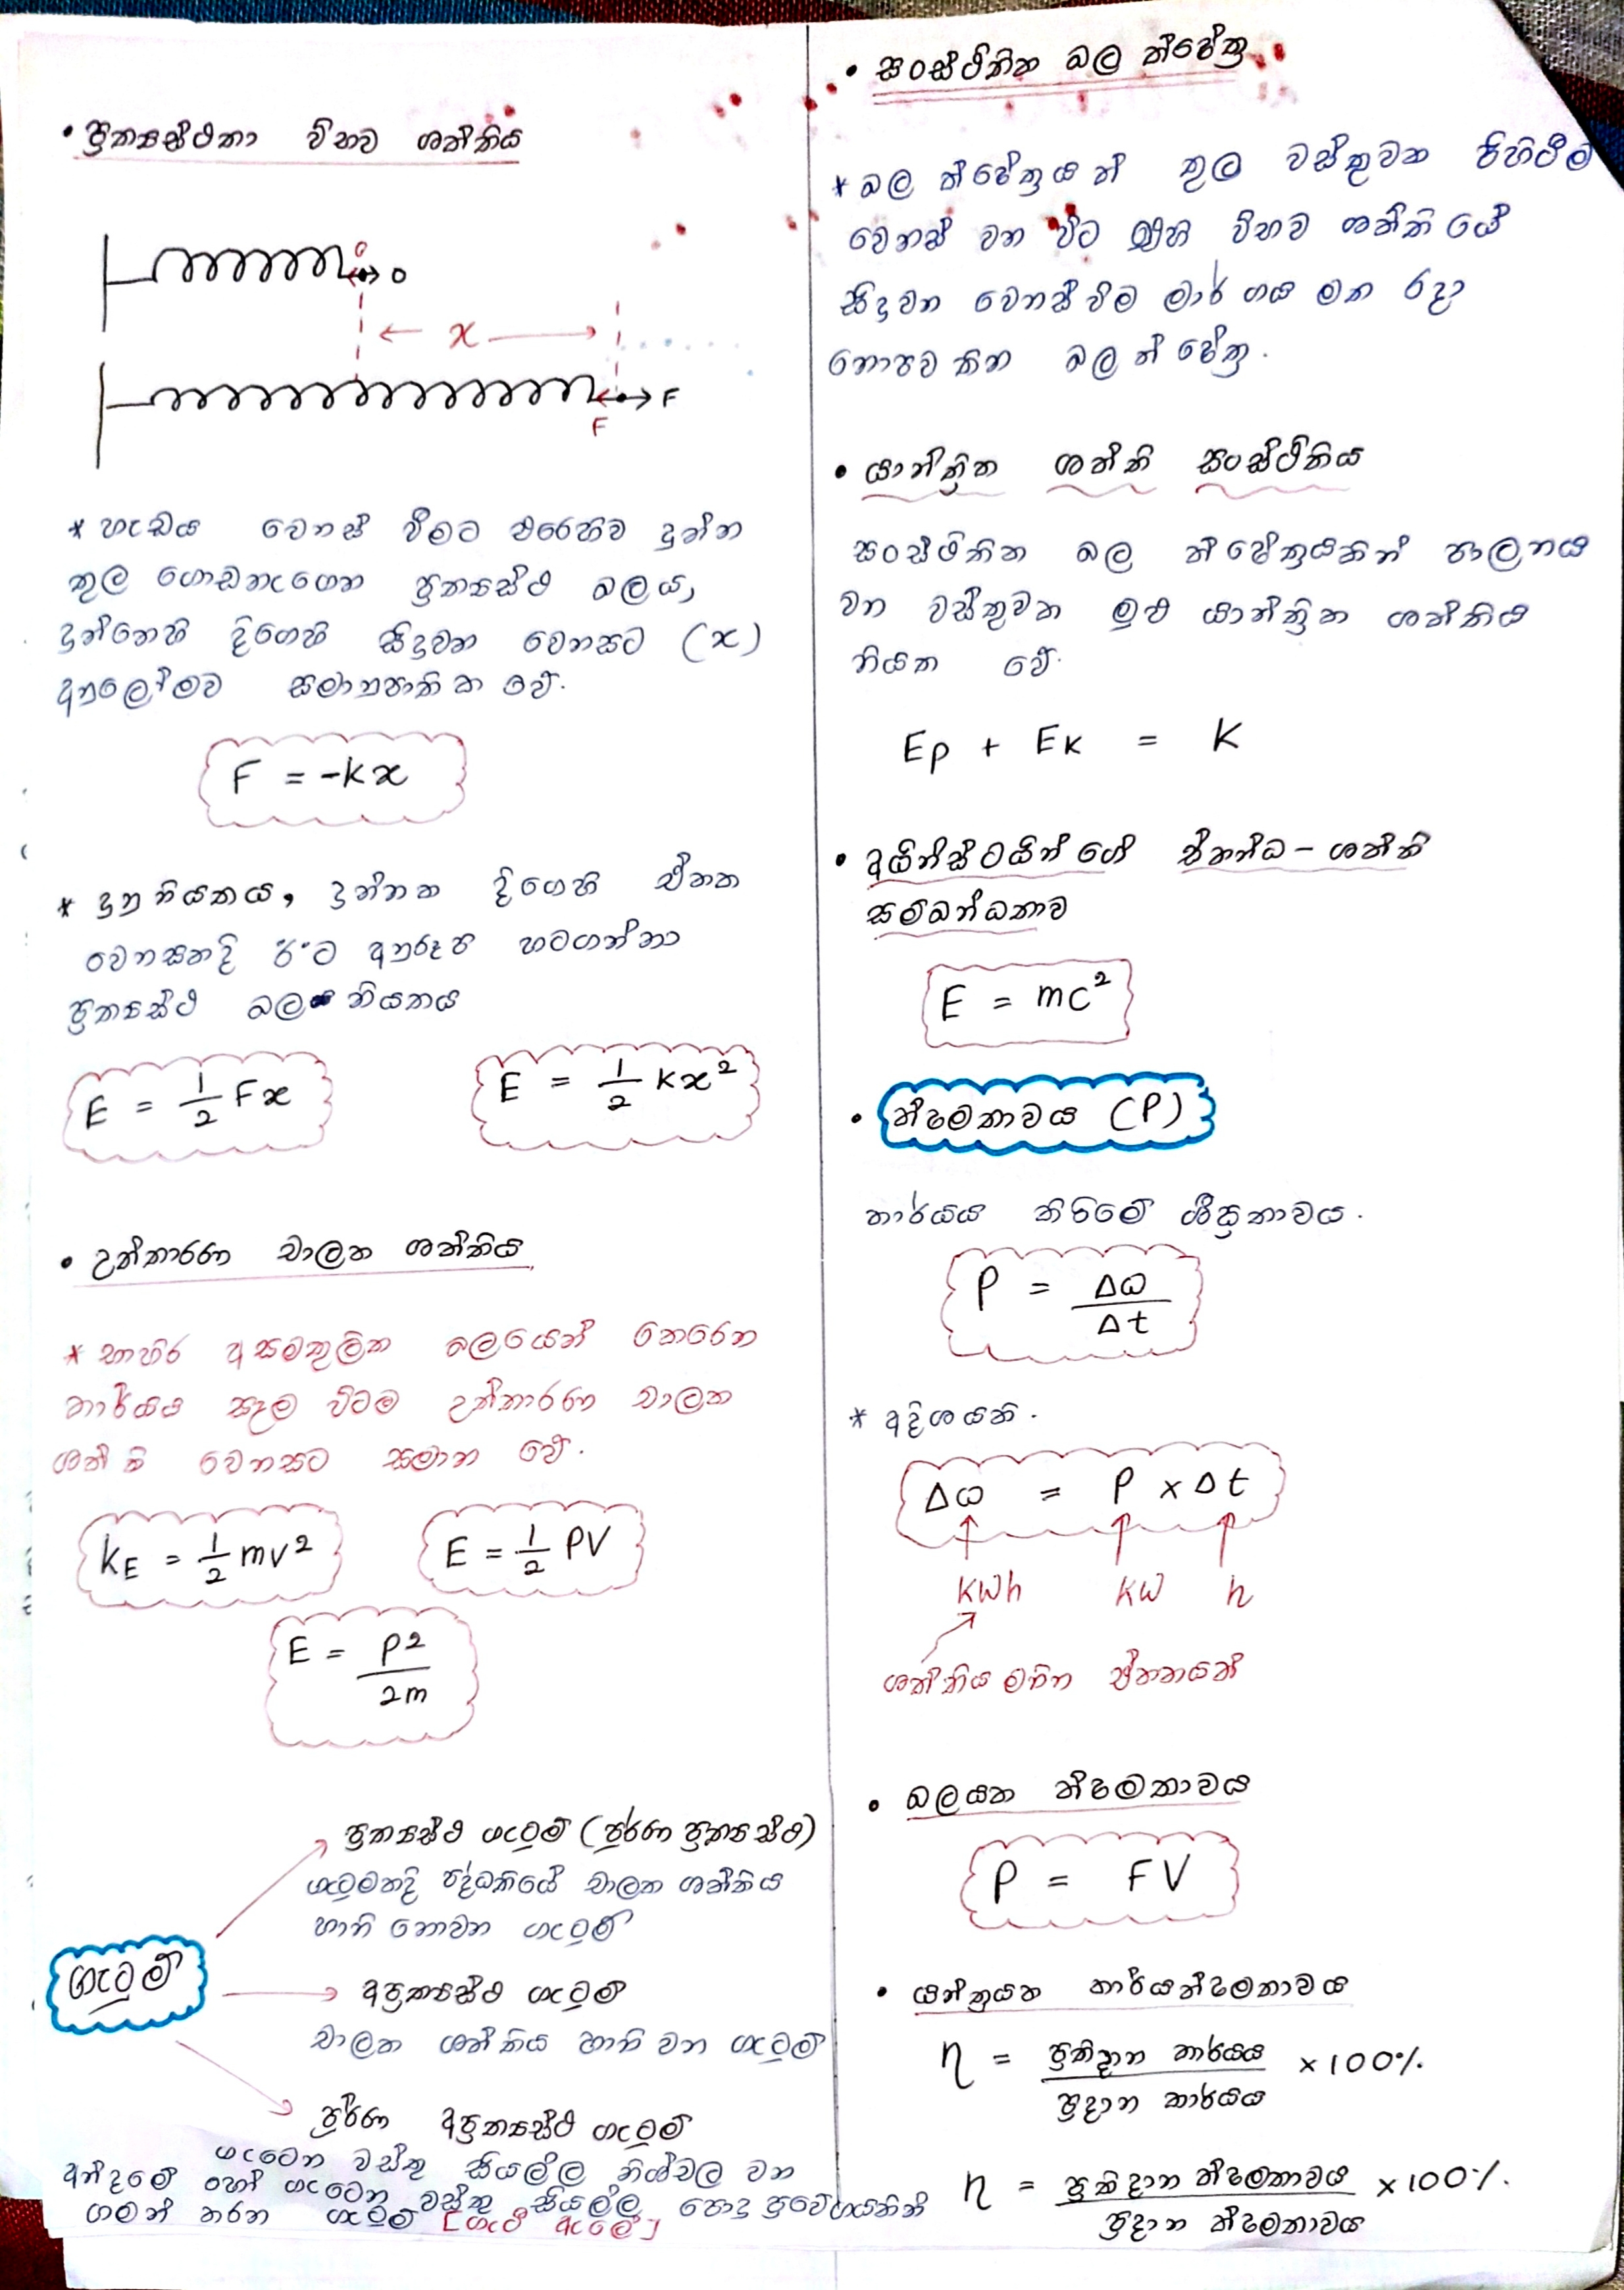 • ප්‍රත්‍යස්ථතා විභව ශක්තිය
O
O
x
F
F
* හැඩය වෙනස් වීමට එරෙහිව දුන්න
තුල ගොඩනැගෙන ප්‍රත්‍යස්ථ බලය,
දුන්නෙහි දිගෙහි සිදුවන වෙනසට (x)
අනුලෝමව සමානුපාතික වේ.
F = -kx
* දුනු නියතය, දුන්නක දිගෙහි ඒකක
වෙනසකදී ඊට අනුරූප හටගන්නා
ප්‍රත්‍යස්ථ බල නියතය
E = 1/2 Fx
E = 1/2 kx²
• උත්තාරණ චාලක ශක්තිය
* භාහිර අසමතුලිත බලයෙන් කෙරෙන
කාර්යය සෑම විටම උත්තාරණ චාලක
ශක්ති වෙනසට සමාන වේ.
KE = 1/2 mv²
E = 1/2 PV
E = P²/2m
ගැටුම්
ප්‍රත්‍යස්ථ ගැටුම් (පූර්ණ ප්‍රත්‍යස්ථ)
ගැටුමකදී පද්ධතියේ චාලක ශක්තිය
හානි නොවන ගැටුම්
අප්‍රත්‍යස්ථ ගැටුම්
චාලක ශක්තිය හානි වන ගැටුම්
පූර්ණ අප්‍රත්‍යස්ථ ගැටුම්
ගැටෙන වස්තු සියල්ල නිශ්චල වන
අන්දමේ හෝ ගැටෙන වස්තු සියල්ල පොදු ප්‍රවේගයකින්
ගමන් කරන ගැටුම් [ගැටී ඇලේ]
• සංස්ථිතික බල ක්ෂේත්‍ර
* බල ක්ෂේත්‍රයක් තුල වස්තුවක පිහිටීම
වෙනස් වන විට එහි විභව ශක්තියේ
සිදුවන වෙනස්වීම මාර්ගය මත රඳා
නොපවතින බල ක්ෂේත්‍ර.
• යාන්ත්‍රික ශක්ති සංස්ථිතිය
සංස්ථිතික බල ක්ෂේත්‍රයකින් පාලනය
වන වස්තුවක මුළු යාන්ත්‍රික ශක්තිය
නියත වේ.
Ep + EK = K
• අයින්ස්ටයින්ගේ ස්කන්ධ - ශක්ති
සම්බන්ධතාව
E = mc²
• ක්ෂමතාවය (P)
කාර්යය කිරීමේ ශීඝ්‍රතාවය.
P = Δω/Δt
* අදිශයකි.
Δω = P × Δt
kWh kW h
ශක්තිය මනින ඒකකයක්
• බලයක ක්ෂමතාවය
P = FV
• යන්ත්‍රයක කාර්යක්ෂමතාවය
η = ප්‍රතිදාන කාර්යය/ප්‍රදාන කාර්යය ×100%
η = ප්‍රතිදාන ක්ෂමතාවය/ප්‍රදාන ක්ෂමතාවය ×100%.